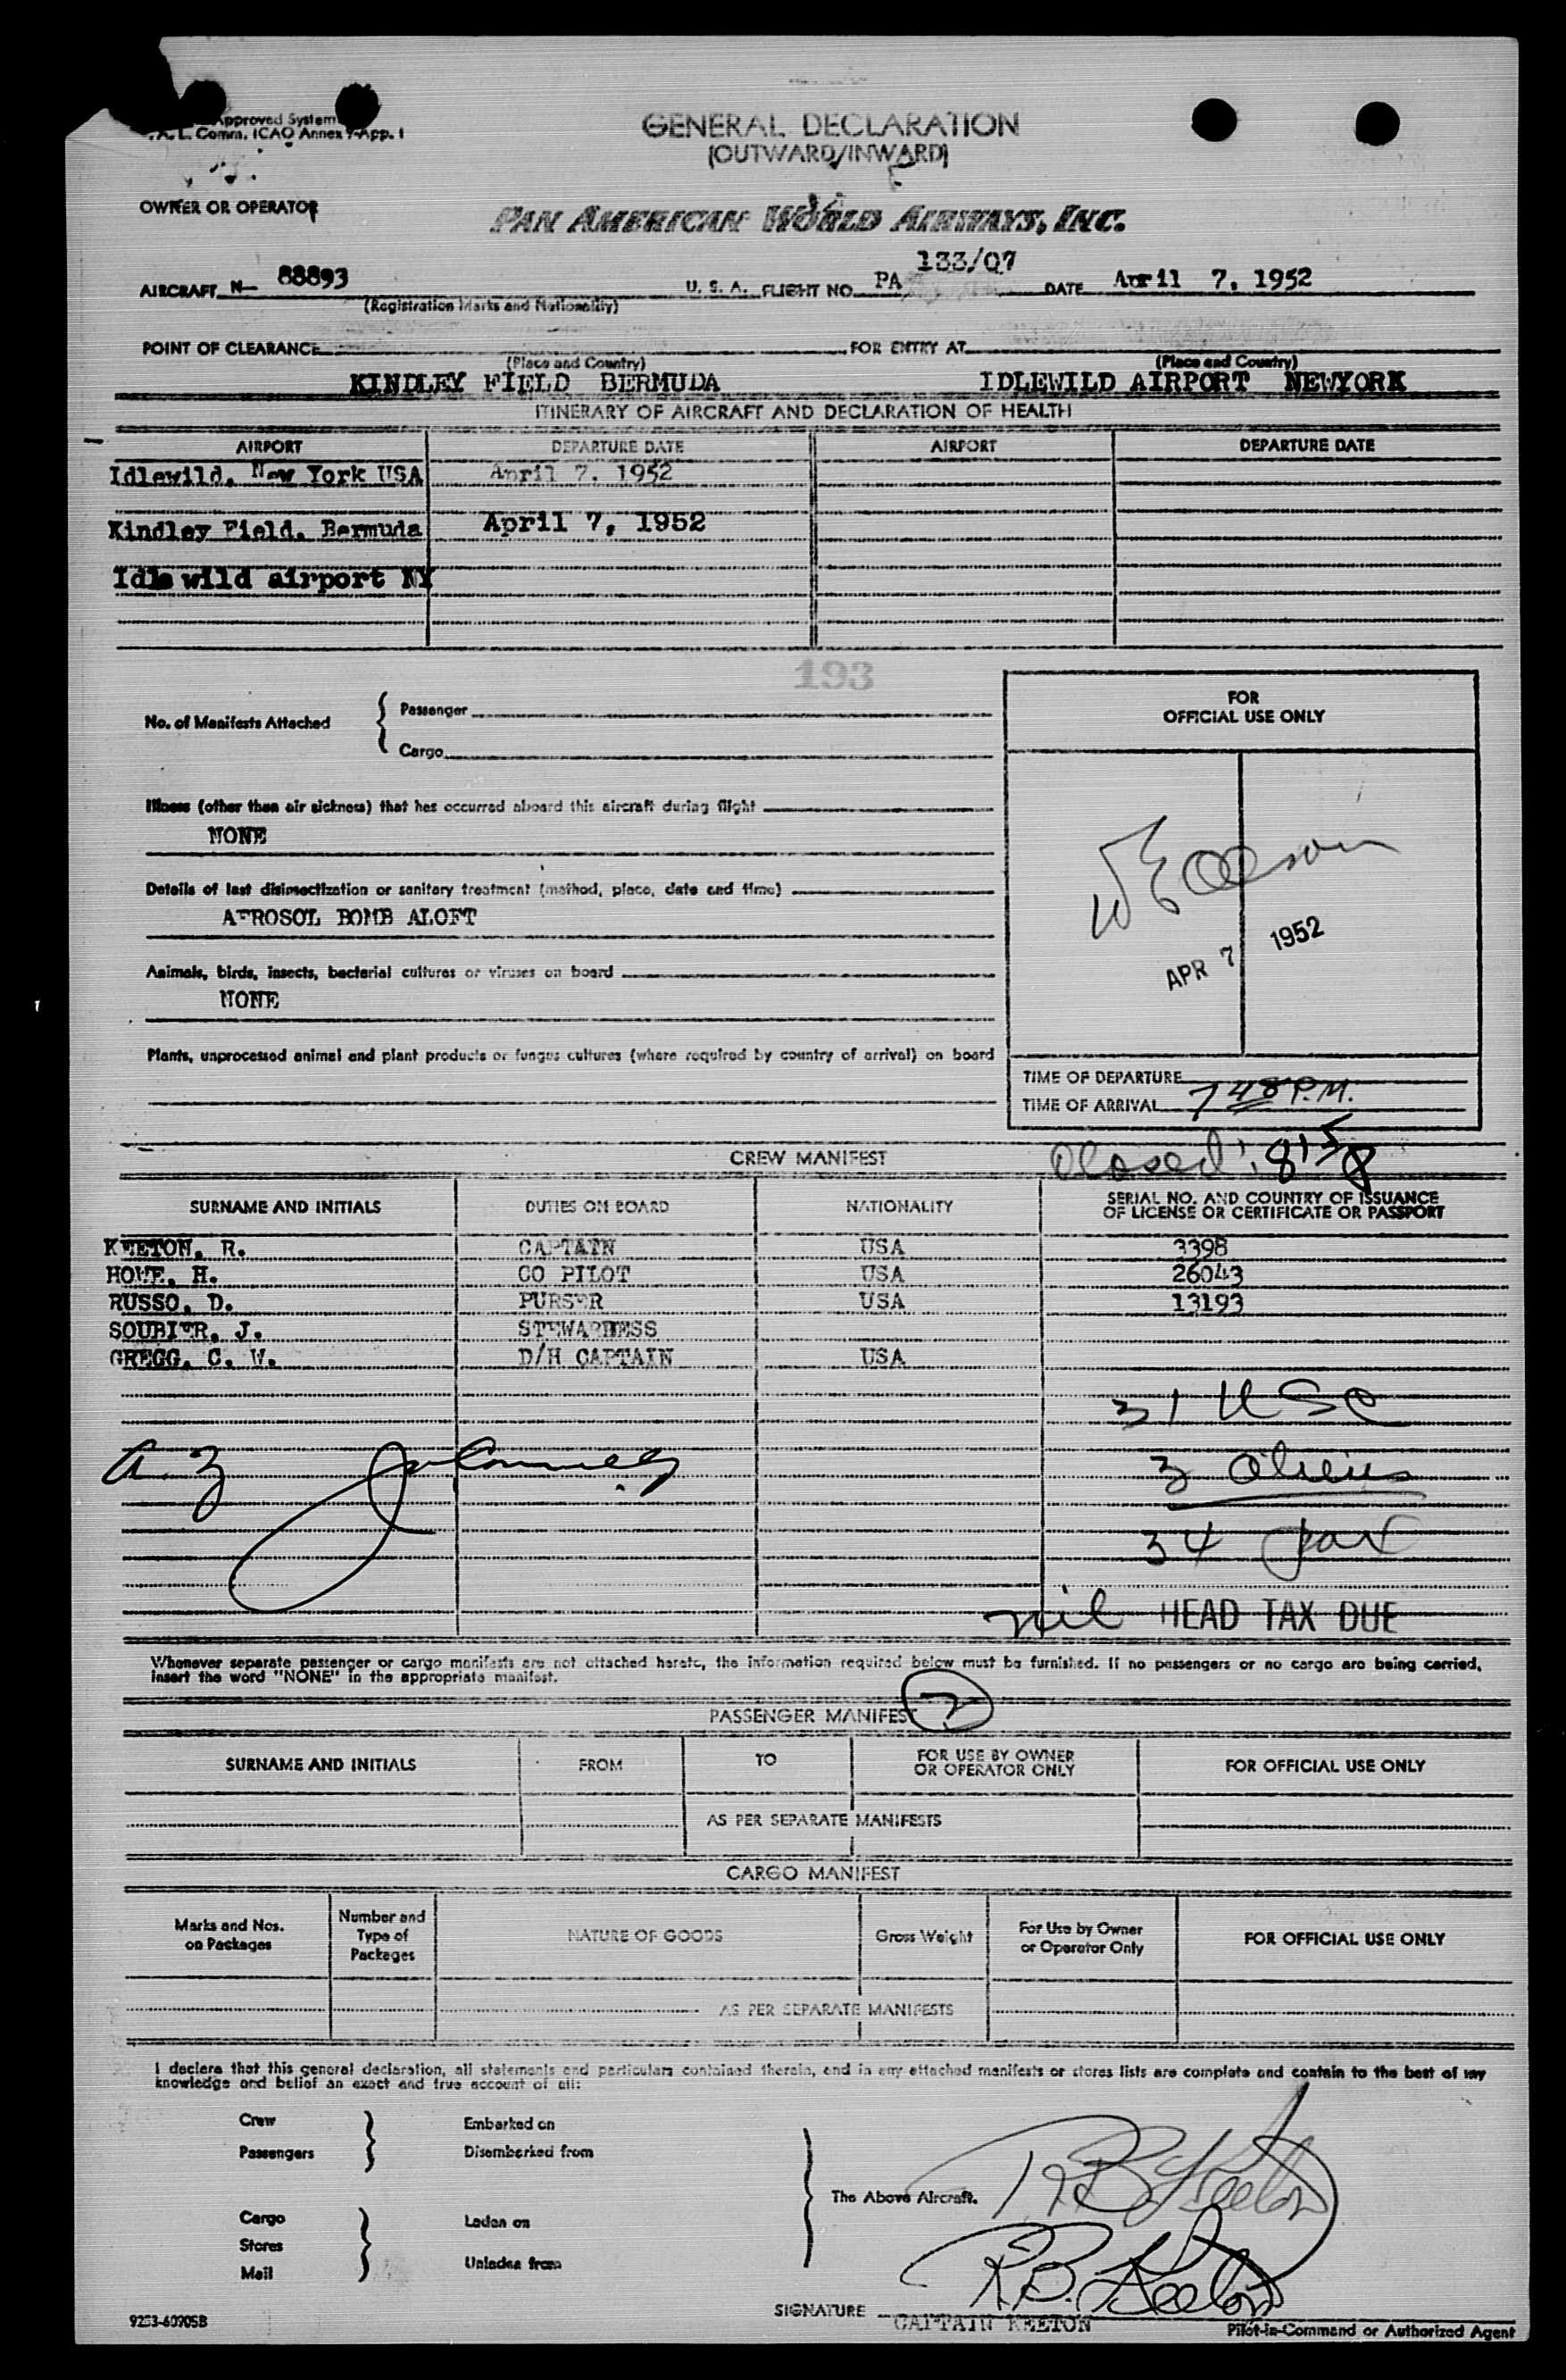 Approved System
Comm. ICAO Annex 9-App. I
GENERAL DECLARATION
(OUTWARD/INWARD)
OWNER OR OPERATOR
PAN AMERICAN WORLD AIRWAYS, INC.
AIRCRAFT N- 88893 U. S. A. FLIGHT NO. PA 133/07 DATE April 7, 1952
(Registration Marks and Nationality)
POINT OF CLEARANCE FOR ENTRY AT
(Place and Country) (Place and Country)
KINDLEY FIELD BERMUDA IDLEWILD AIRPORT NEWYORK
ITINERARY OF AIRCRAFT AND DECLARATION OF HEALTH
AIRPORT DEPARTURE DATE AIRPORT DEPARTURE DATE
Idlewild, New York USA April 7, 1952
Kindley Field, Bermuda April 7, 1952
Idlewild airport NY
193
No. of Manifests Attached { Passenger
Cargo
FOR
OFFICIAL USE ONLY
Illness (other than air sickness) that has occurred aboard this aircraft during flight
NONE
Details of last disinsectization or sanitary treatment (method, place, date and time)
AEROSOL BOMB ALOFT
APR 7 1952
Animals, birds, insects, bacterial cultures or viruses on board
NONE
Plants, unprocessed animal and plant products or fungus cultures (where required by country of arrival) on board
TIME OF DEPARTURE
TIME OF ARRIVAL 7 48 P.M.
Closed 8 15 P
CREW MANIFEST
SURNAME AND INITIALS DUTIES ON BOARD NATIONALITY SERIAL NO. AND COUNTRY OF ISSUANCE
OF LICENSE OR CERTIFICATE OR PASSPORT
KEETON, R. CAPTAIN USA 3398
HOWE, H. CO PILOT USA 26043
RUSSO, D. PURSER USA 13193
SOUBIER, J. STEWARDESS
GREGG, C. W. D/H CAPTAIN USA
31 USC
3 aliens
34 pax
nil HEAD TAX DUE
Whenever separate passenger or cargo manifests are not attached hereto, the information required below must be furnished. If no passengers or no cargo are being carried,
insert the word "NONE" in the appropriate manifest.
PASSENGER MANIFEST 2
SURNAME AND INITIALS FROM TO FOR USE BY OWNER
OR OPERATOR ONLY FOR OFFICIAL USE ONLY
AS PER SEPARATE MANIFESTS
CARGO MANIFEST
Marks and Nos.
on Packages Number and
Type of
Packages NATURE OF GOODS Gross Weight For Use by Owner
or Operator Only FOR OFFICIAL USE ONLY
AS PER SEPARATE MANIFESTS
I declare that this general declaration, all statements and particulars contained therein, and in any attached manifests or stores lists are complete and contain to the best of my
knowledge and belief an exact and true account of all:
Crew Embarked on
Passengers Disembarked from
The Above Aircraft. R B Keeton
Cargo Laden on
Stores
Mail Unladen from
R.B. Keeton
SIGNATURE CAPTAIN KEETON
9253-60905B Pilot-in-Command or Authorized Agent